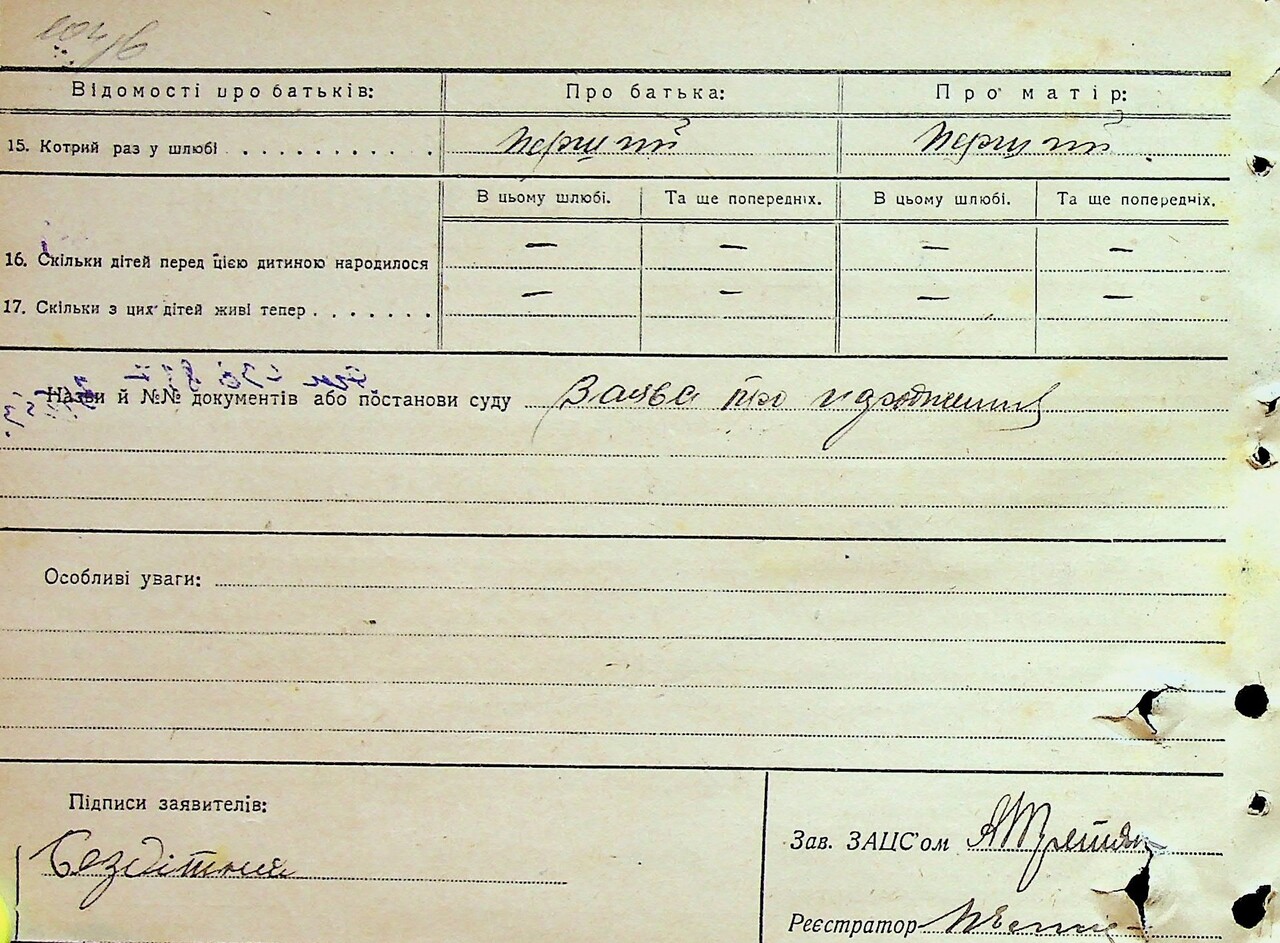 Відомості про батьків: Про батька: Про матір:
15. Котрий раз у шлюбі . . . . . . . . . . . перший перший
В цьому шлюбі. Та ще попередніх. В цьому шлюбі. Та ще попередніх.
16. Скільки дітей перед цією дитиною народилося — — — —
17. Скільки з цих дітей живі тепер . . . . . . . — — — —
Назви й №№ документів або постанови суду Заява про
Особливі уваги:
Підписи заявителів:
Зав. ЗАЦС'ом
Бездітний
Реєстратор